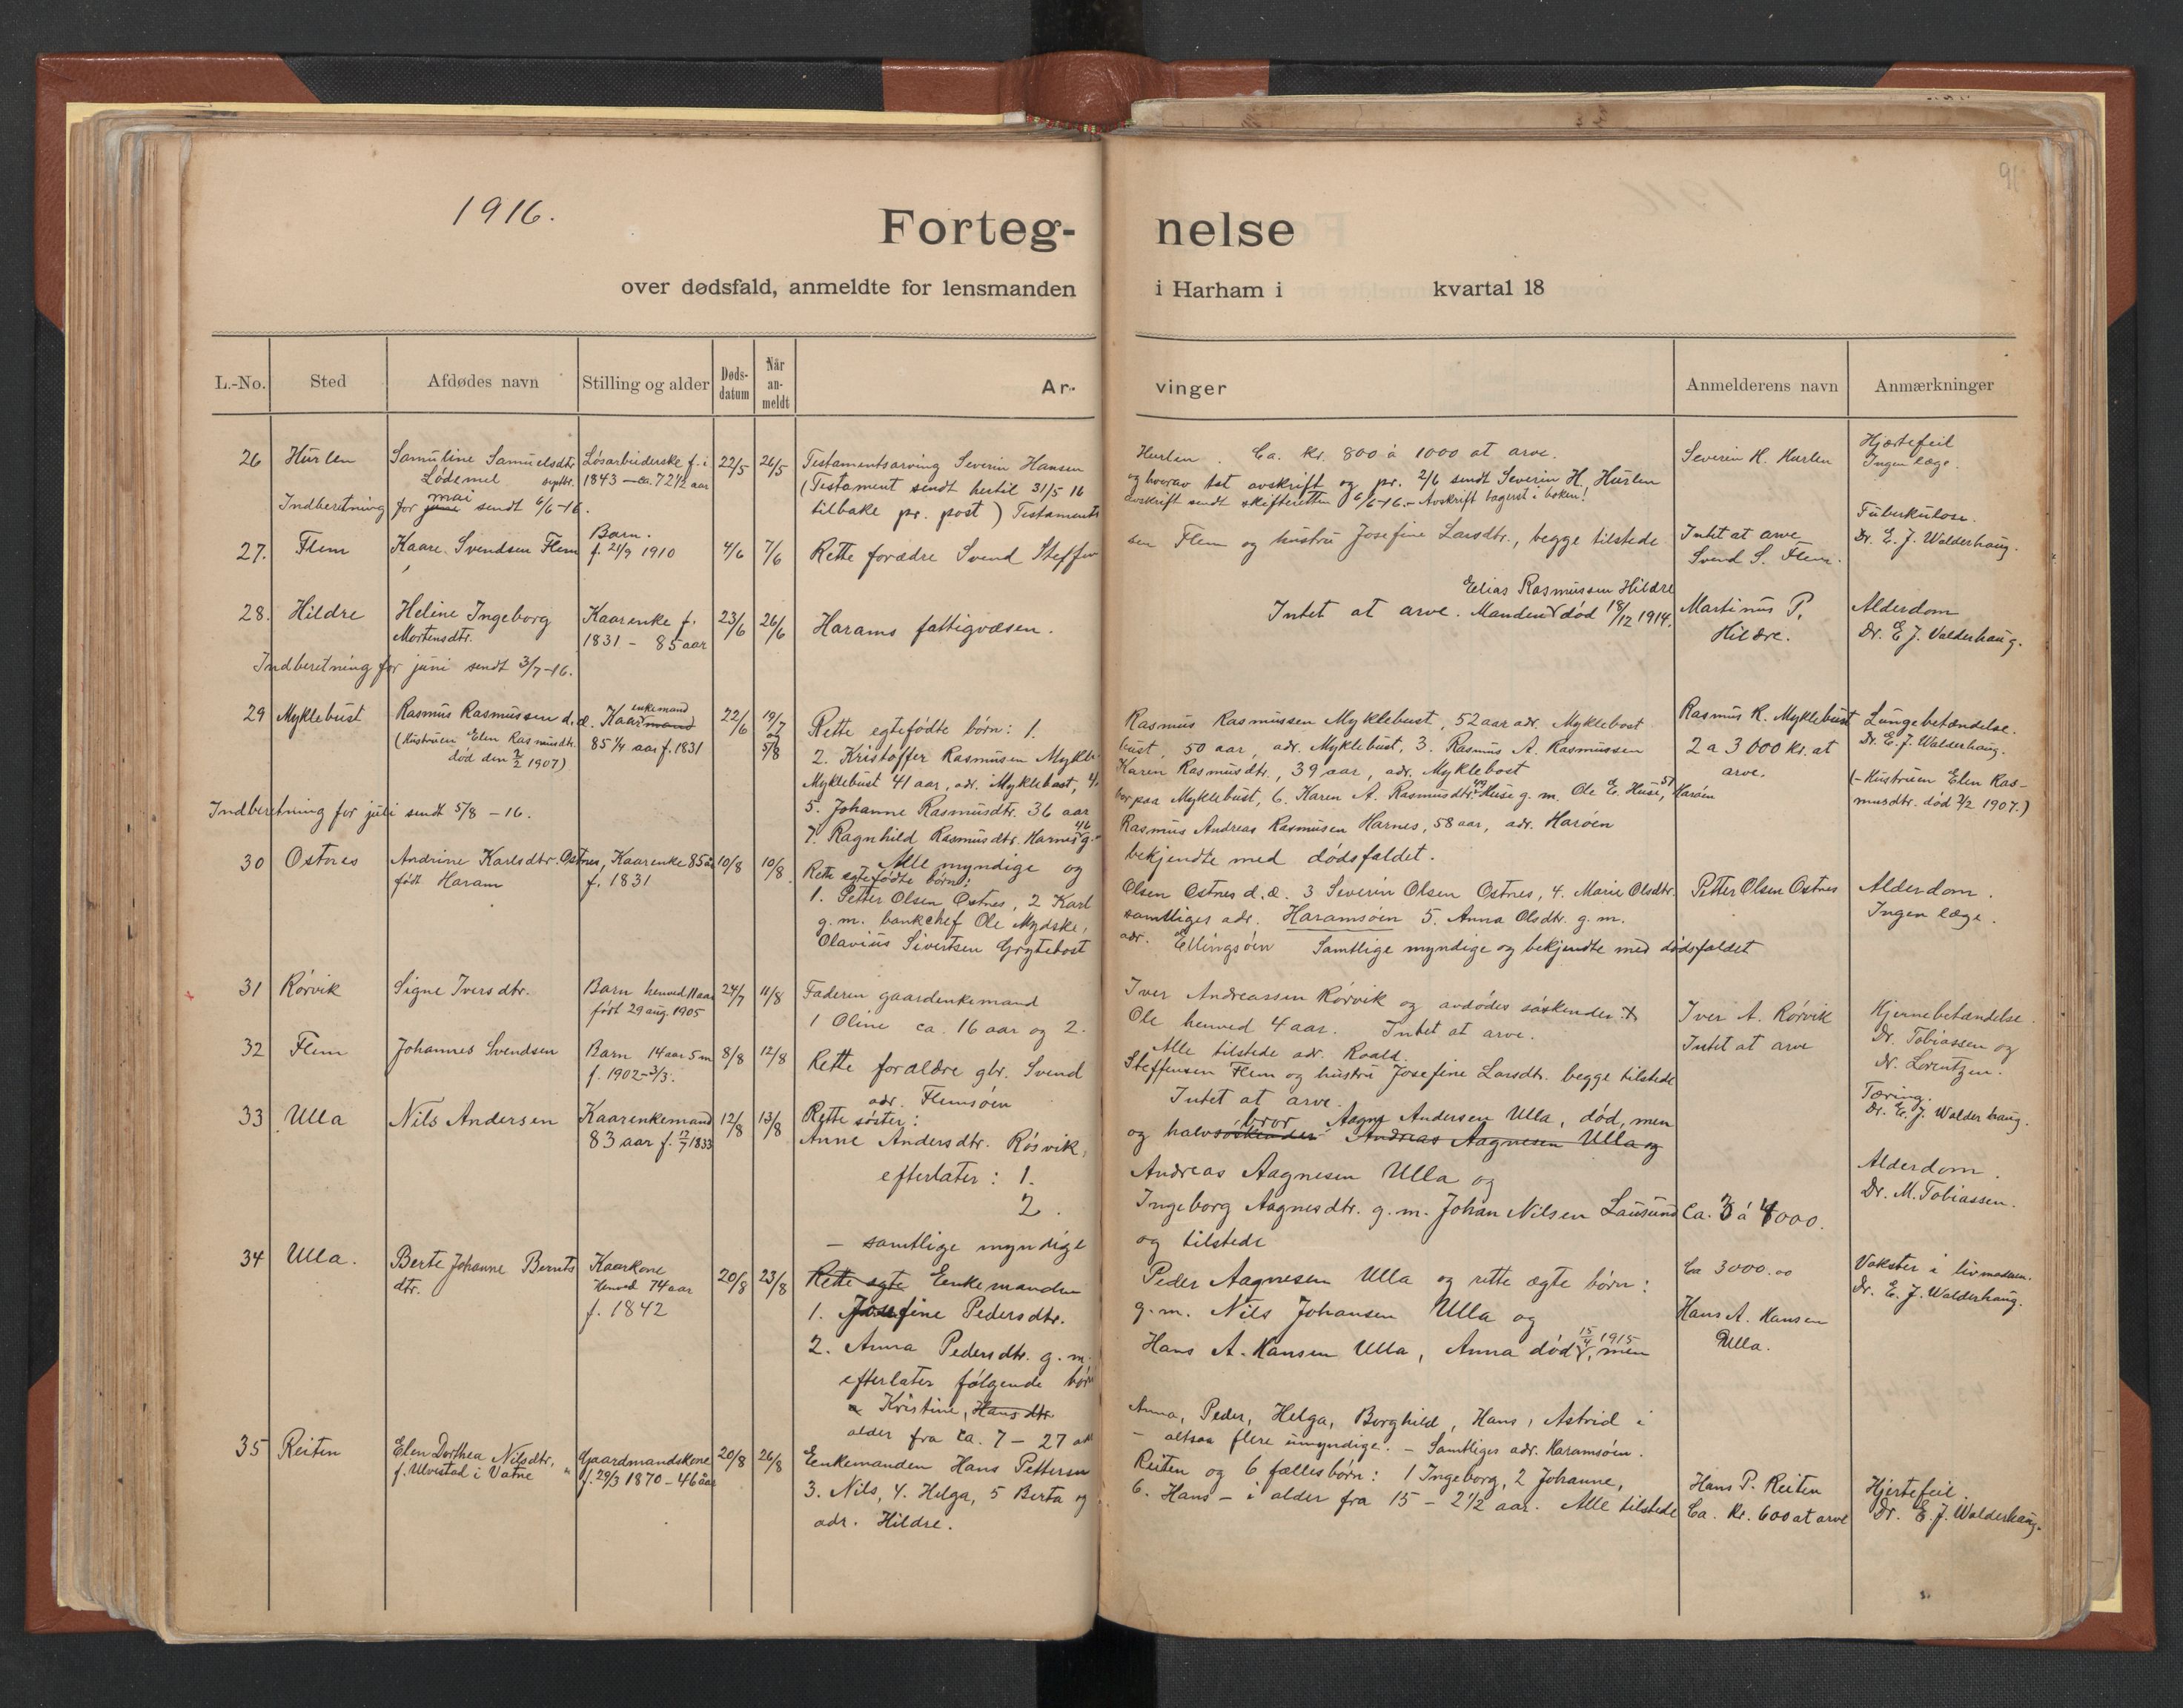 91
1916.
Forteg-nelse
over dødsfald, anmeldte for lensmanden i Harham i kvartal 18
L.-No. Sted Afdødes navn Stilling og alder Døds-datum Når an-meldt Ar-vinger Anmelderens navn Anmærkninger
26 Hurlen Samuline Samuelsdtr. Løsarbeiderske f. i 22/5 26/5 Testamentsarving Severin Hansen Hurlen. Ca. kr. 800 à 1000 at arve. Severin H. Hurlen Hjærtefeil
Lødemel septbr. 1843 – ca. 72 1/2 aar (Testament sendt hertil 31/5 16 og herav tat avskrift og pr. 2/6 sendt Severin H. Hurlen Ingen læge.
Indberetning for juni mai sendt 6/6-16. tilbake pr. post) Testaments avskrift sendt skifteretten 6/6-16. – Avskrift bagerst i boken!
27. Flem Kaare Svendsen Flem Barn. f. 21/9 1910 4/6 7/6 Rette forædre Svend Steffen sen Flem og hustru Josefine Larsdtr., begge tilstede Intet at arve Tuberkulose.
Svend S. Flem. Dr. E. J. Walderhaug.
28. Hildre Heline Ingeborg Kaarenke f. 23/6 26/6 Harams fattigvæsen. Intet at arve. Manden Elias Rasmussen Hildre død 18/12 1914. Martinus P. Alderdom
Mortensdtr. 1831 – 85 aar Hildre. Dr. E. J. Valderhaug.
Indberetning for juni sendt 3/7-16.
29 Myklebust Rasmus Rasmussen d.æ. Kaarmand enkemand 22/6 19/7 og 5/8 Rette egtefødte børn: 1. Rasmus Rasmussen Myklebust, 52 aar adr. Myklebost Rasmus R. Myklebust Lungebetændelse.
(Hustruen Elen Rasmusdtr. 85 1/4 aar f. 1831 2. Kristoffer Rasmusen Mykle bust, 50 aar, adr. Myklebust, 3. Rasmus A. Rasmussen 2 a 3000 kr. at Dr. E. J. Walderhaug.
død den 2/2 1907) Myklebust 41 aar, adr. Myklebost, 4. Karen Rasmusdtr., 39 aar, adr. Myklebost arve. (-Hustruen Elen Ras-
Indberetning for juli sendt 5/8 – 16. 5. Johanne Rasmusdtr. 36 aar bor paa Myklebust, 6. Karen A. Rasmusdtr. 49 Huse g. m. Ole E. Huse, 51 Harøen musdtr. død 2/2 1907.)
7. Ragnhild Rasmusdtr. Harnes 46 g. Rasmus Andreas Rasmusen Harnes, 58 aar, adr. Harøen
Alle myndige og bekjendte med dødsfaldet.
30 Ostnes Andrine Karlsdtr. Ostnes, Kaarenke 85 aar 10/8 10/8. Rette egtefødte børn:
født Haram f. 1831 1. Petter Olsen Ostnes, 2 Karl Olsen Ostnes d.æ. 3 Severin Olsen Ostnes, 4. Marie Olsdtr. Petter Olsen Ostnes Alderdom.
g. m. bankchef Ole Mydske, samtliges adr. Haramsøen 5. Anna Olsdtr. g. m. Ingen læge.
Olavius Sivertsen Grytebost adr. Ellingsøen Samtlige myndige og bekjendte med dødsfaldet
31 Rørvik Signe Iversdtr. Barn henved 11 aar 24/7 11/8 Faderen gaardenkemand Iver Andreassen Rørvik og avdødes søskender: Iver A. Rørvik Hjernebetændelse.
født 29 aug. 1905 1 Oline ca. 16 aar og 2. Ole henved 4 aar. Intet at arve. Intet at arve Dr. Tobiassen og
Alle tilstede adr. Roald. dr. Lorentzen.
32 Flem Johannes Svendsen Barn 14 aar 5 m 8/8 12/8 Rette forældre gbr. Svend Steffensen Flem og hustru Josefine Larsdtr. begge tilstede
f. 1902-3/3. adr. Flemsøen Intet at arve. Tæring.
33 Ulla Nils Andersen Kaarenkemand 12/8 13/8 Rette søster: bror Aagne Andersen Ulla, død, men Dr. E. J. Walderhaug.
83 aar f. 12/7 1833 Anne Andersdtr. Røsvik, og halvsøskender Andreas Aagnesen Ulla og
efterlater: 1. Andreas Aagnesen Ulla og Alderdom
2. Ingeborg Aagnesdtr. g. m. Johan Nilsen Lausund Ca. 3 á 4000. Dr. M. Tobiassen.
– samtlige myndige og tilstede
34 Ulla. Berte Johanne Bernts Kaarkone 20/8 23/8 Rette egte Enkemanden Peder Aagnesen Ulla og rette ægte børn: Ca 3000.00 Vokster i livmoderen.
dtr. Henved 74 aar 1. Josefine Pedersdtr. g. m. Nils Johansen Ulla og Hans A. Hansen Dr. E. J. Walderhaug.
f. 1842 2. Anna Pedersdtr. g. m. Hans A. Hansen Ulla, Anna død 15/4 1915, men Ulla.
efterlater følgende børn
Kristine, Hansdtr. Anna, Peder, Helga, Borghild, Hans, Astrid i
alder fra ca. 7 – 27 aar – altsaa flere umyndige. – Samtliges adr. Haramsøen.
35 Reiten Elen Dorthea Nilsdtr., Gaardmandskone 20/8 26/8 Enkemanden Hans Pettersen Reiten og 6 fællesbørn: 1 Ingeborg, 2 Johanne, Hans P. Reiten Hjertefeil.
f. Ulvestad i Vatne f. 29/3 1870 – 46 aar 3. Nils, 4. Helga, 5 Berta og 6. Hans – i alder fra 15 – 2 1/2 aar. Alle tilstede Ca. kr. 600 at arve Dr. E. J. Walderhaug.
adr. Hildre.